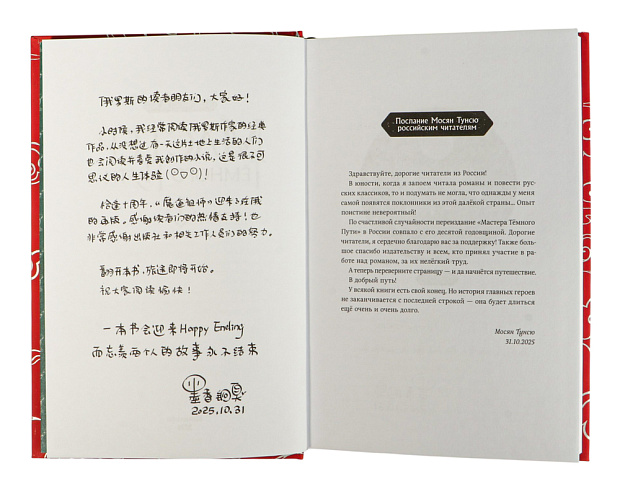 俄罗斯的读者朋友们，大家好！
小时候，我经常阅读俄罗斯作家的经典
作品，从没想过有一天这片土地上生活的人们
也会阅读并喜爱我创作的小说，这是很不可
思议的人生体验（○▽○）！
恰逢十周年，《魔道祖师》迎来了俄
的再版。感谢读者们的热情支持！也
非常感谢出版社和相关工作人员们的努力。
翻开本书，旅途即将开始。
祝大家阅读愉快！
一本书会迎来Happy Ending
而忘羡两个人的故事永不结束
墨香铜臭
2025.10.31
Послание Мосян Тунсю
российским читателям
Здравствуйте, дорогие читатели из России!
В юности, когда я запоем читала романы и повести рус-
ских классиков, то и подумать не могла, что однажды у меня
самой появятся поклонники из этой далёкой страны... Опыт
поистине невероятный!
По счастливой случайности переиздание «Мастера Тёмного
Пути» в России совпало с его десятой годовщиной. Дорогие
читатели, я сердечно благодарю вас за поддержку! Также боль-
шое спасибо издательству и всем, кто принял участие в ра-
боте над романом, за их нелёгкий труд.
А теперь переверните страницу — и да начнётся путешествие.
В добрый путь!
У всякой книги есть свой конец. Но история главных героев
не заканчивается с последней строкой — она будет длиться
ещё очень и очень долго.
Мосян Тунсю
31.10.2025